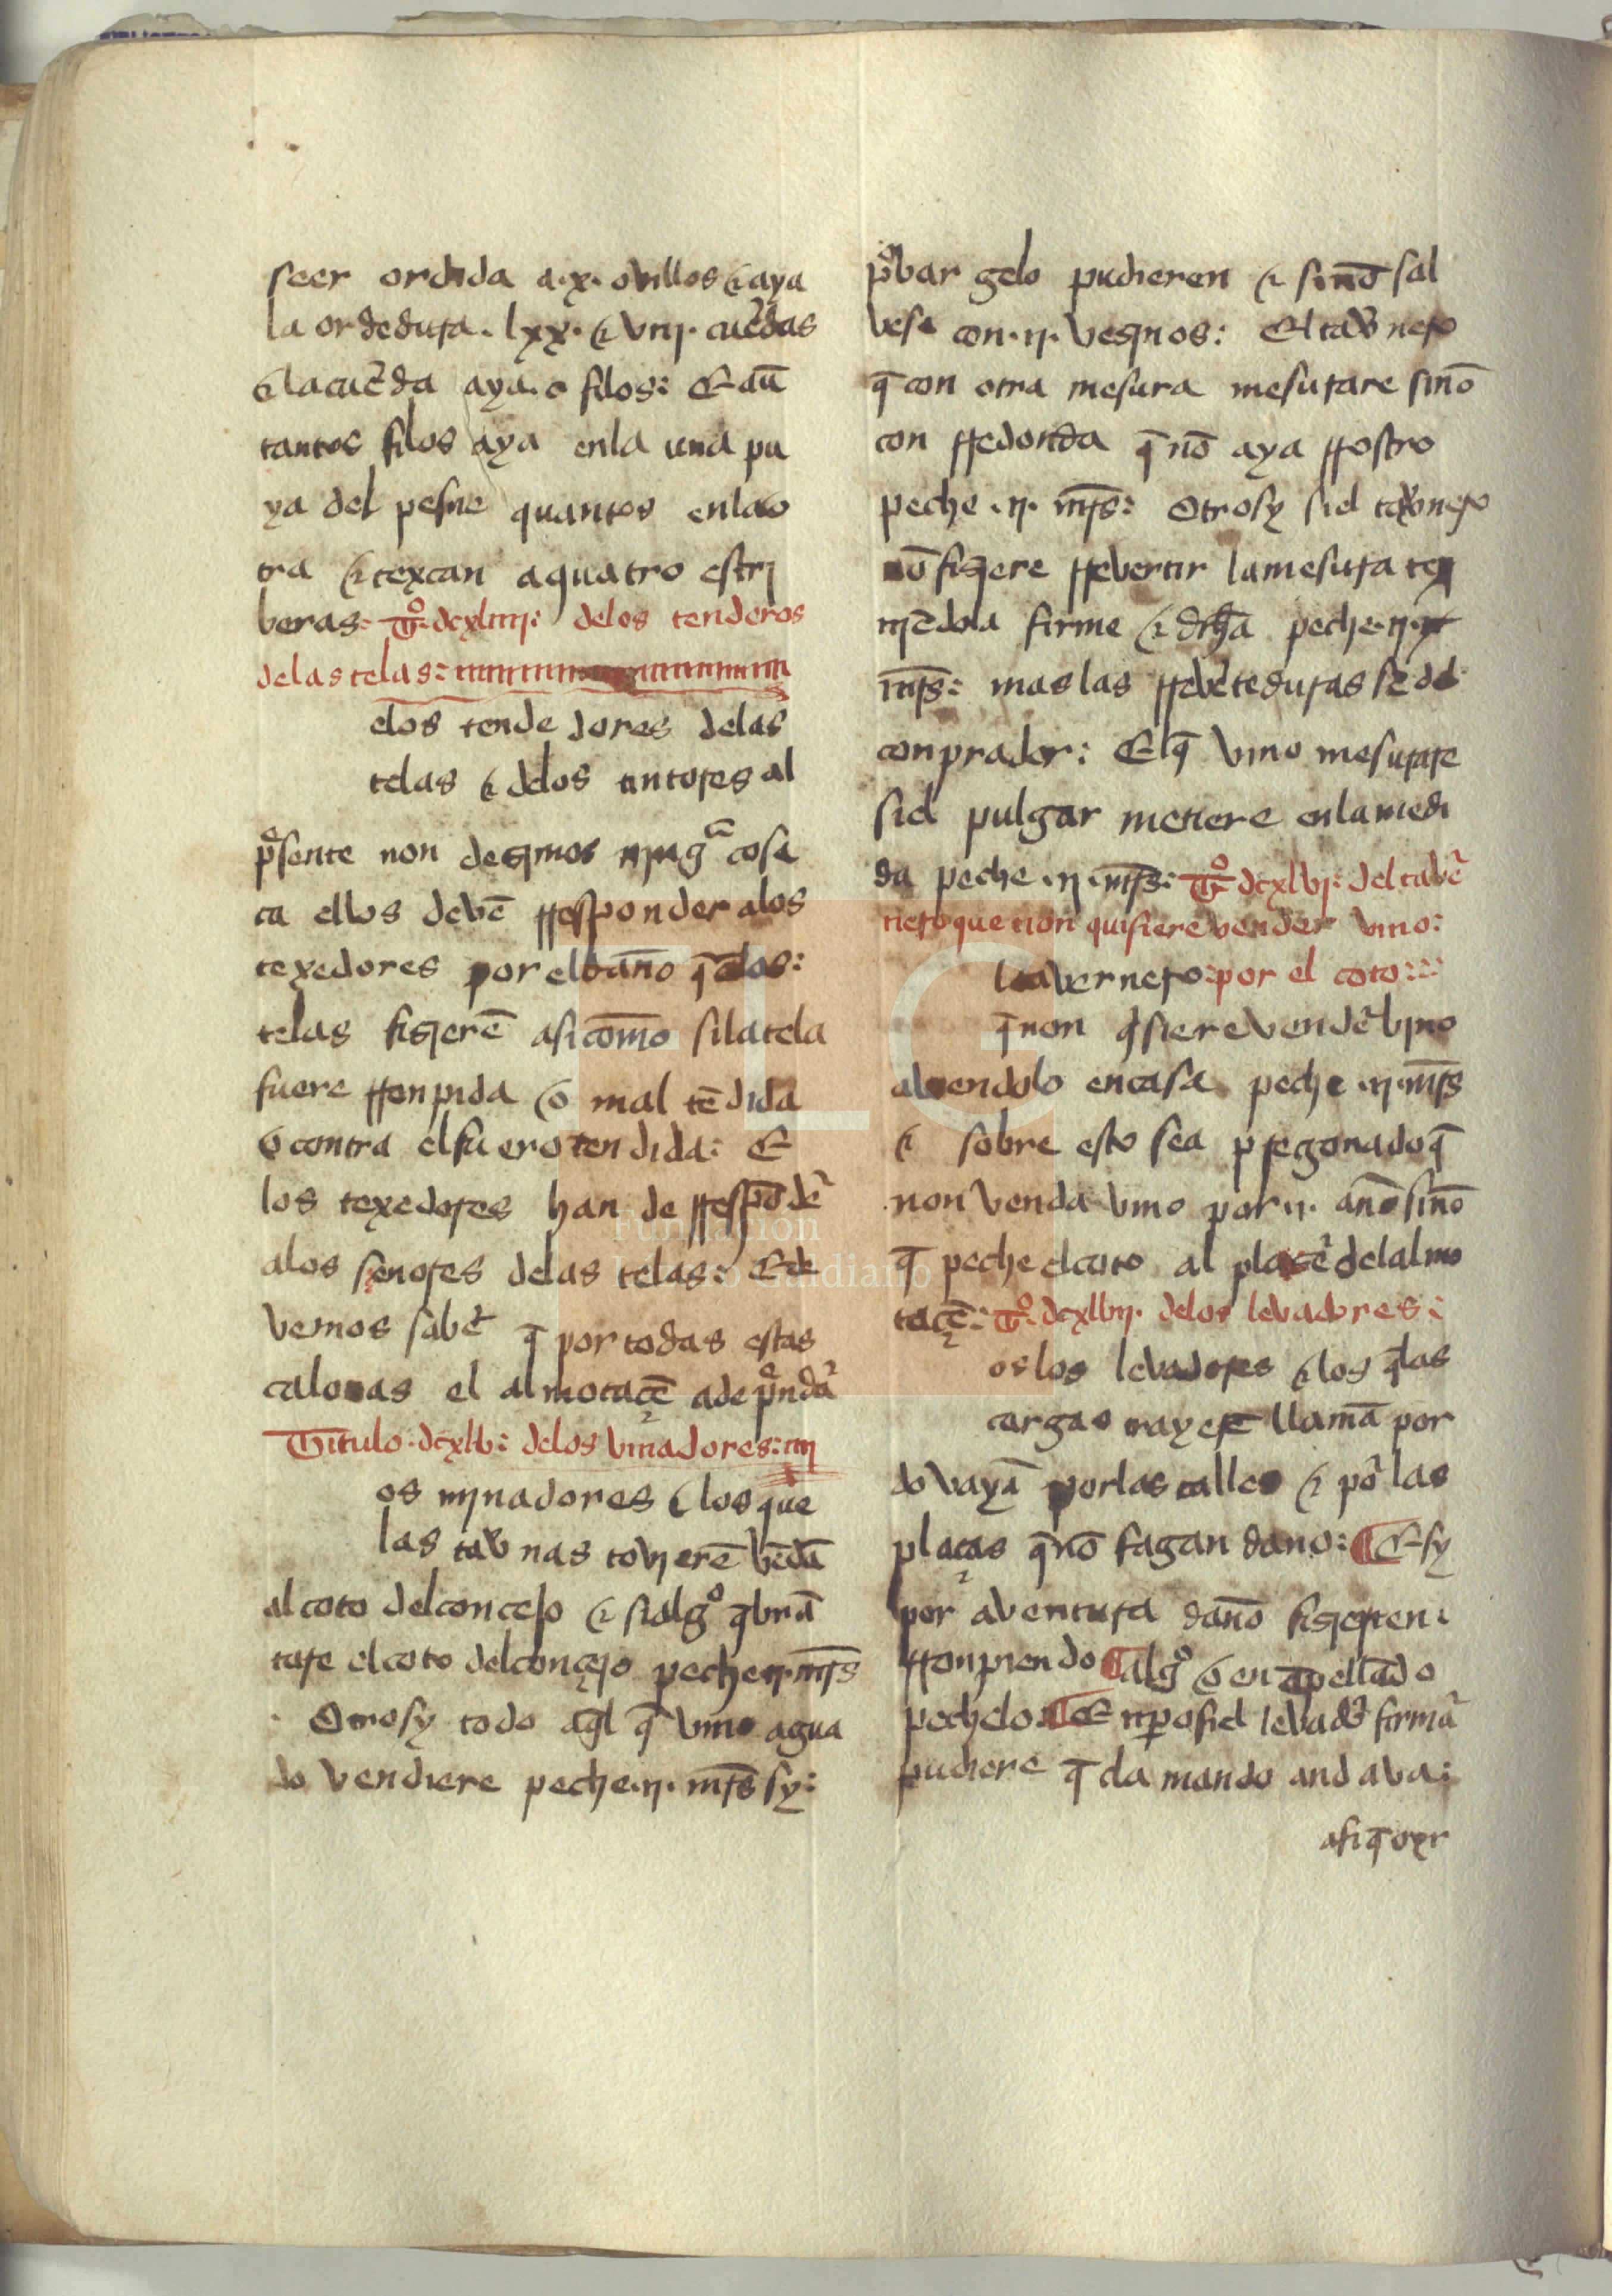 seer ordida a .x. ovillos & aya
la ordedura .lxx. & viij. cuẽdas
& la cuẽda aya .c. filos: E aũ
tantos filos aya en la una pu
ya del pesne quantos en la o
tra & texcan a quatro estri
beras: Tº. dcxliiij: delos tenderos
delas telas:
elos tendedores delas
telas & delos tintores al
p̃sente non desimos njngª cosa
ca ellos devẽ rresponder alos
texedores por el daño q̃ elos:
telas fisierẽ asi como si la tela
fuere rronpida o mal tẽdida
o contra el fuero tendida: E
los texedores han de rrespõdẽ
alos señores delas telas: E de
vemos sabẽ q̃ por todas estas
calonas el almotaçẽ a de p̃ndã
Titulo .dcxlv: delos vinadores:
os vjnadores & los que
las tavnas tovierẽ vẽdã
al coto del concejo & si algº q̃brã
tare el coto del conçejo peche .ij. mr̃s
Otrosy todo aq̃l q̃ vino agua
do vendiere peche .ij. mr̃s sy:
pºbar gelo pudieren & si nõ sal
vese con .ij. vesinos: El tavnero
q̃ con otra mesura mesurare sinõ
con rredonda q̃ nõ aya rrostro
peche .ij. mr̃s: Otrosy si el tavnero
nõ fisiere rrevertir la mesura te
njẽdola firme & drh̃a peche .ij.
mr̃s: mas las rrevẽteduras sẽ del
conprador: El q̃ vino mesurare
si el pulgar metiere en la medi
da peche .ij. mr̃s: Tº dcxlvj: del tavẽ
nero que non quisiere vender vino:
l tavernero: por el coto:
q̃ non q̃siere vendẽ vjno
abiendolo en casa peche .ij. mr̃s
& sobre esto sea pregonado q̃
non venda vino por .ij. año sinõ
q̃ peche el coto al plasẽ del almo
taçẽ: Tº. dcxlvij. delos levadores:
os los levadores & los q̃ las
cargas trayere llamã por
do vayã por las calles & põ las
plaças q̃ nõ fagan dano: E sy
por aventura daño fisierren
rronpiendo algº o en apellado
pechelo: E npo si el levadõ firmã
pudiere q̃ clamando andava:
asi q̃ oyr